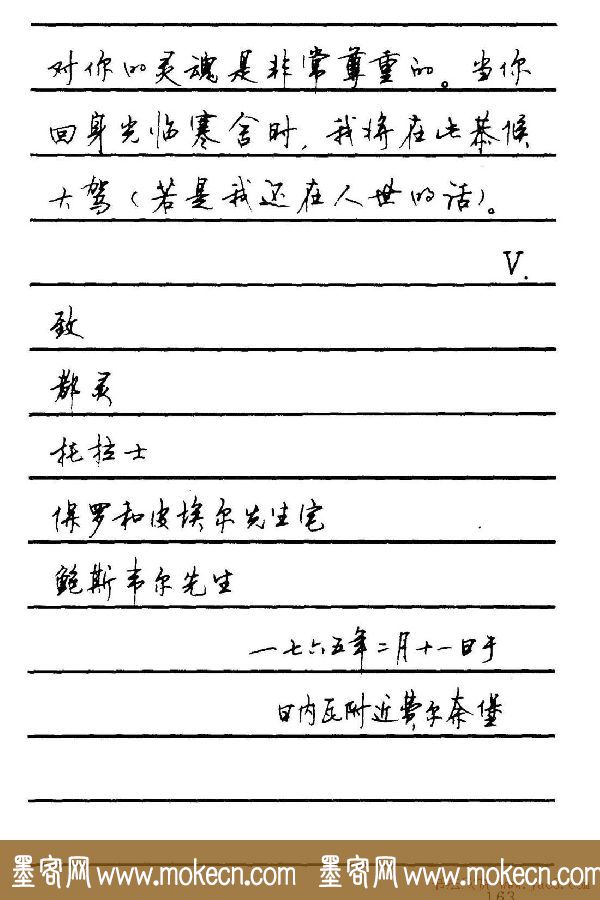 对你的灵魂是非常尊重的。当你
回身光临寒舍时，我将在此恭候
大驾（若是我还在人世的话）。
V.
致
都灵
托拉士
保罗和皮埃尔先生宅
鲍斯韦尔先生
一七六五年二月十一日于
日内瓦附近费尔奈堡
墨客网 www.mokecn.com 墨客网 www.mokecn.com
163